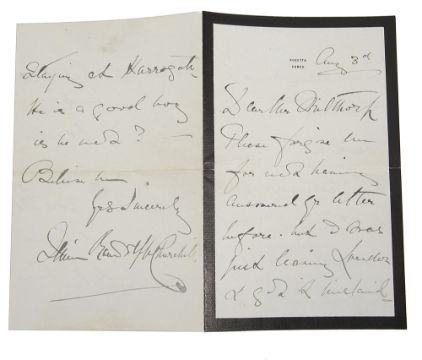 Aug 3rd
Dear Mrs
Please forgive me
for not having
answered yr letter
before. but I was
just leaving London
&
Staying at Harrogate
He is a good boy
is he not?
Believe me
Yrs Sincerely
Jennie Randolph Churchill